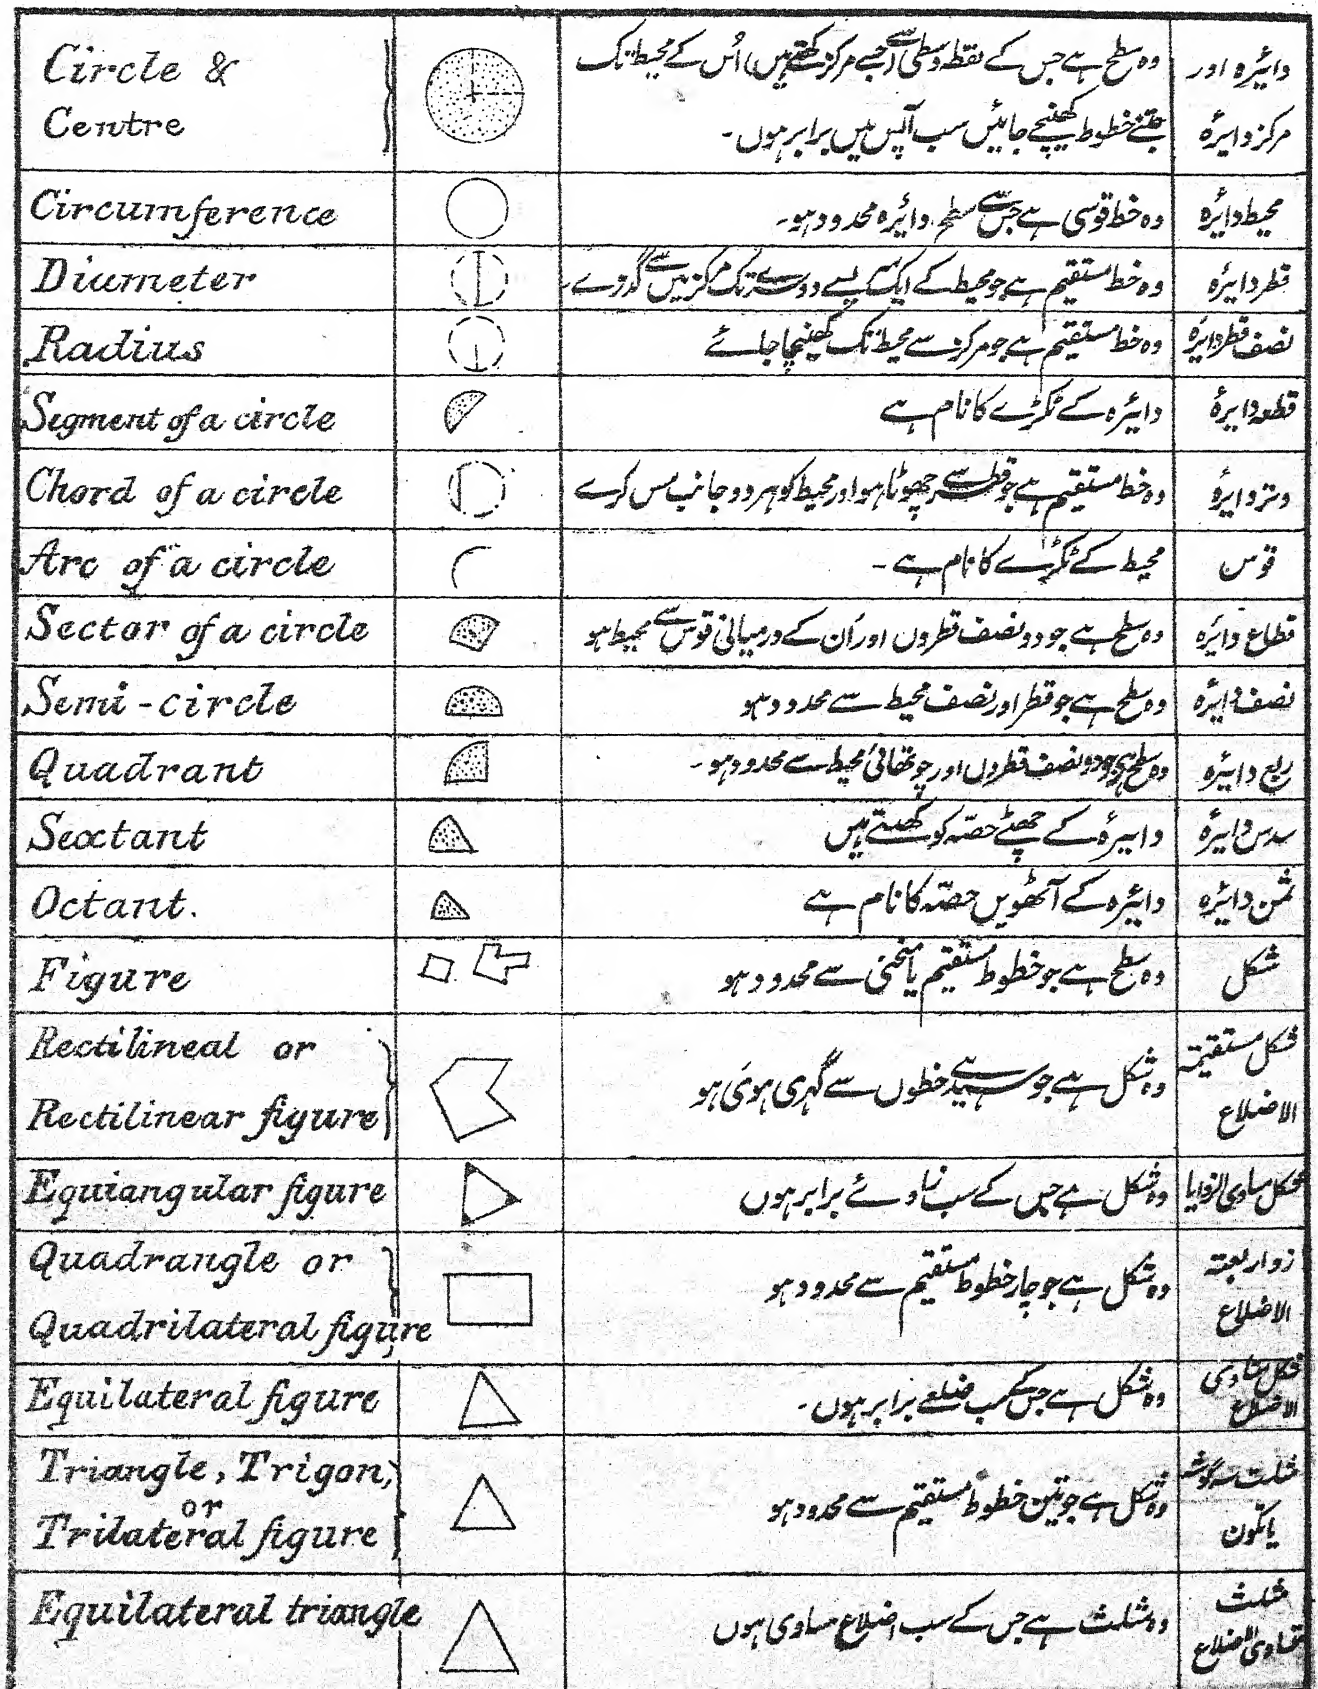 Circle &
Centre
وہ سطح ہے جس کے نقطہ وسطی سے (جسے مرکز کہتے ہیں) اُس کے محیط تک
جتنے خطوط کھینچے جائیں سب آپس میں برابر ہوں۔
دائیرہ اور
مرکز دایرہ
Circumference
وہ خط قوسی ہے جس سے سطح دائیرہ محدود ہو۔
محیط دائرہ
Diameter
وہ خط مستقیم ہے جو محیط کے ایک سے دوسرے تک مرکز میں سے گذرے۔
قطر دائرہ
Radius
وہ خط مستقیم ہے جو مرکز سے محیط تک کھینچا جائے
نصف قطر دایرہ
Segment of a circle
دائیرہ کے ٹکڑے کا نام ہے
قطعہ دایرہ
Chord of a circle
وہ خط مستقیم ہے جو قطر سے چھوٹا ہو اور محیط کو ہر دو جانب مس کرے
وتر دایرہ
Arc of a circle
محیط کے ٹکڑے کا نام ہے۔
قوس
Sector of a circle
وہ سطح ہے جو دو نصف قطروں اور اُن کے درمیانی قوس سے محیط ہو
قطاع دائرہ
Semi-circle
وہ سطح ہے جو قطر اور نصف محیط سے محدود ہو
نصف دایرہ
Quadrant
وہ سطح ہے جو دو نصف قطروں اور چوتھائی محیط سے محدود ہو۔
ربع دائیرہ
Sextant
دائیرہ کے چھٹے حصّہ کو کہتے ہیں
سدس دایرہ
Octant.
دائیرہ کے آٹھویں حصّہ کا نام ہے
ثمن دائرہ
Figure
وہ سطح ہے جو خطوط مستقیم یا منحنی سے محدود ہو
شکل
Rectilineal or
Rectilinear figure
وہ شکل ہے جو سیدھے خطوں سے گہری ہوئی ہو
شکل مستقیمتہ
الاضلاع
Equiangular figure
وہ شکل ہے جس کے سب زاوئے برابر ہوں
شکل مساوی الزوایا
Quadrangle or
Quadrilateral figure
وہ شکل ہے جو چار خطوط مستقیم سے محدود ہو
ذوار بعتہ
الاضلاع
Equilateral figure
وہ شکل ہے جس کے سب ضلعے برابر ہوں۔
شکل مساوی
الاضلاع
Triangle, Trigon,
or
Trilateral figure
وہ شکل ہے جو تین خطوط مستقیم سے محدود ہو
مثلث سہ گوشہ
یا تکون
Equilateral triangle
وہ مثلث ہے جس کے سب اضلاع مساوی ہوں
مثلث
متساوی الاضلاع